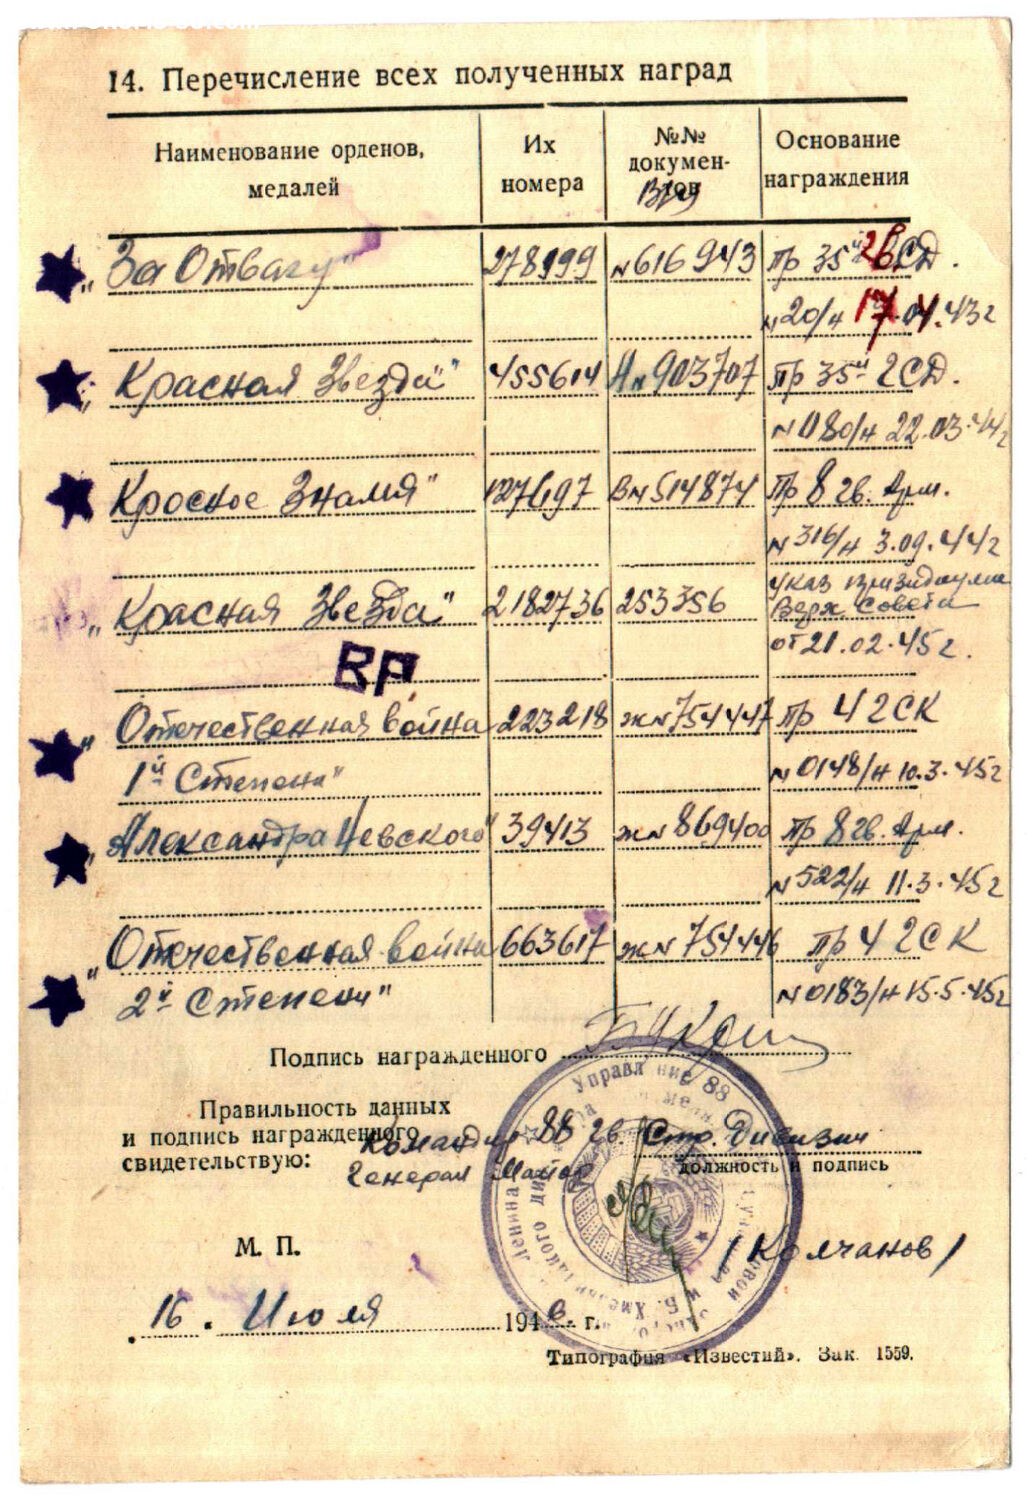 14. Перечисление всех полученных наград
Наименование орденов, медалей
Их номера
№№ докумен-тов
Основание награждения
"За Отвагу" 278999 №616943 Пр 35й гв СД.
№20/н 17.04.43г
"Красная Звезда" 455614 А№903707 Пр 35й гСД.
№080/н 22.03.44г
Кросное Знамя" 127697 В№514874 Пр 8 гв. Арм.
№316/н 3.09.44г
"Красная Звезда" 2182736 253356 Указ призидиума
Верх. Совета
от 21.02.45г.
ВР
"Отечественная война 223218 Ж№754447 Пр 4 гСК
1й Степени" №0148/н 10.3.45г
"Александра Невского" 39413 Ж№869400 Пр 8 гв. Арм.
№522/н 11.3.45г
"Отечественная война 663617 Ж№754446 Пр 4 гСК
2й Степени" №0183/н 15.5.45г
Подпись награжденного
Правильность данных
и подпись награжденного
свидетельствую:
Командир 88 гв. Стр. Дивизии
Генерал Майор
должность и подпись
М. П.
/Колчанов/
16. Июля 1946. г.
Типография «Известий». Зак. 1559.